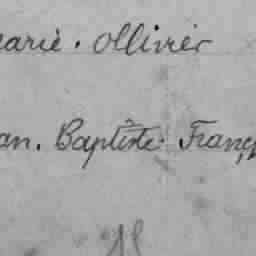 arie. Ollivier
an. Baptiste Franç